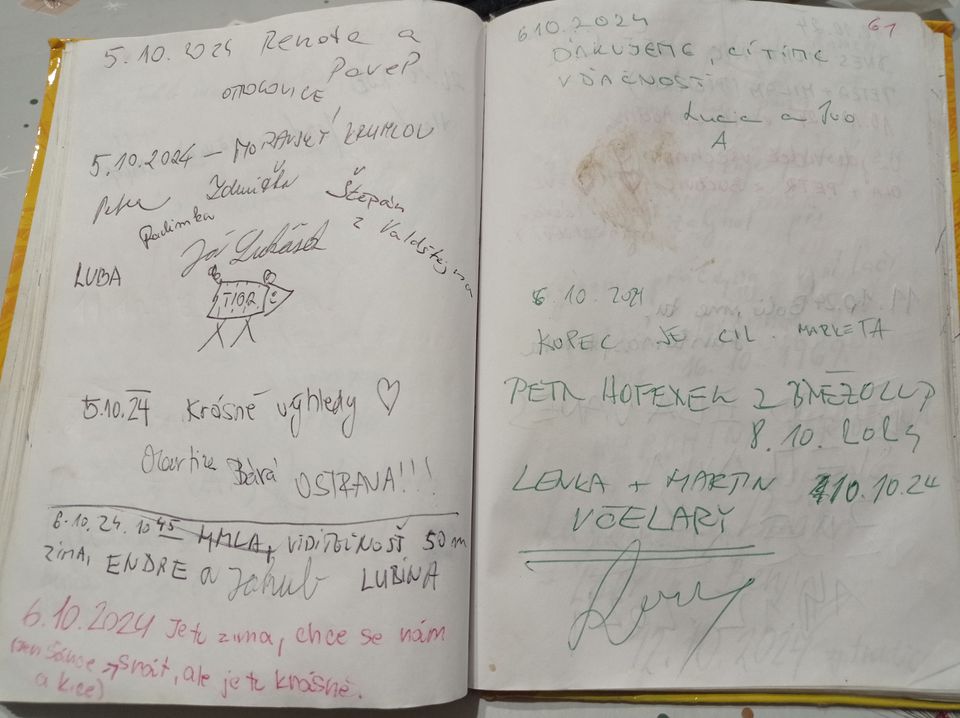 5.10.2024 Renata a
Pavel
OTROKOVICE
5.10.2024 – MORAVSKÝ KRUMLOV
Petra Zdenička Štěpán
Radimka z Valdštejna
Já Lukášek
LUBA
5.10.24 Krásné výhledy ♡
Martina Bára OSTRAVA!!!
6.10.24. 10 45 HMLA, VIDITEĽNOSŤ 50 m
ZIMA, ENDRE a Jakub LUBINA
6.10.2024 Je tu zima, chce se nám
srát, ale je tu krásně.
a kice)
61
6 10.2024
ĎAKUJEME, CÍTIME
VĎAČNOSŤ!
Lucia a Ivo
A
6.10.2024
KOPEC JE CIL. MARKETA
PETR Z BŘEZOLUP
8.10.2024
LENKA + MARTIN 10.10.24
VČELARY